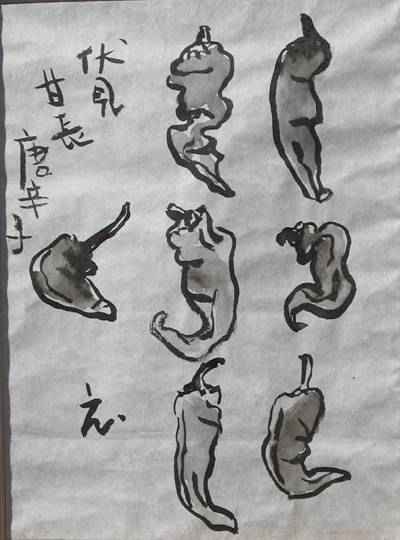 伏見
甘長
唐辛子
え